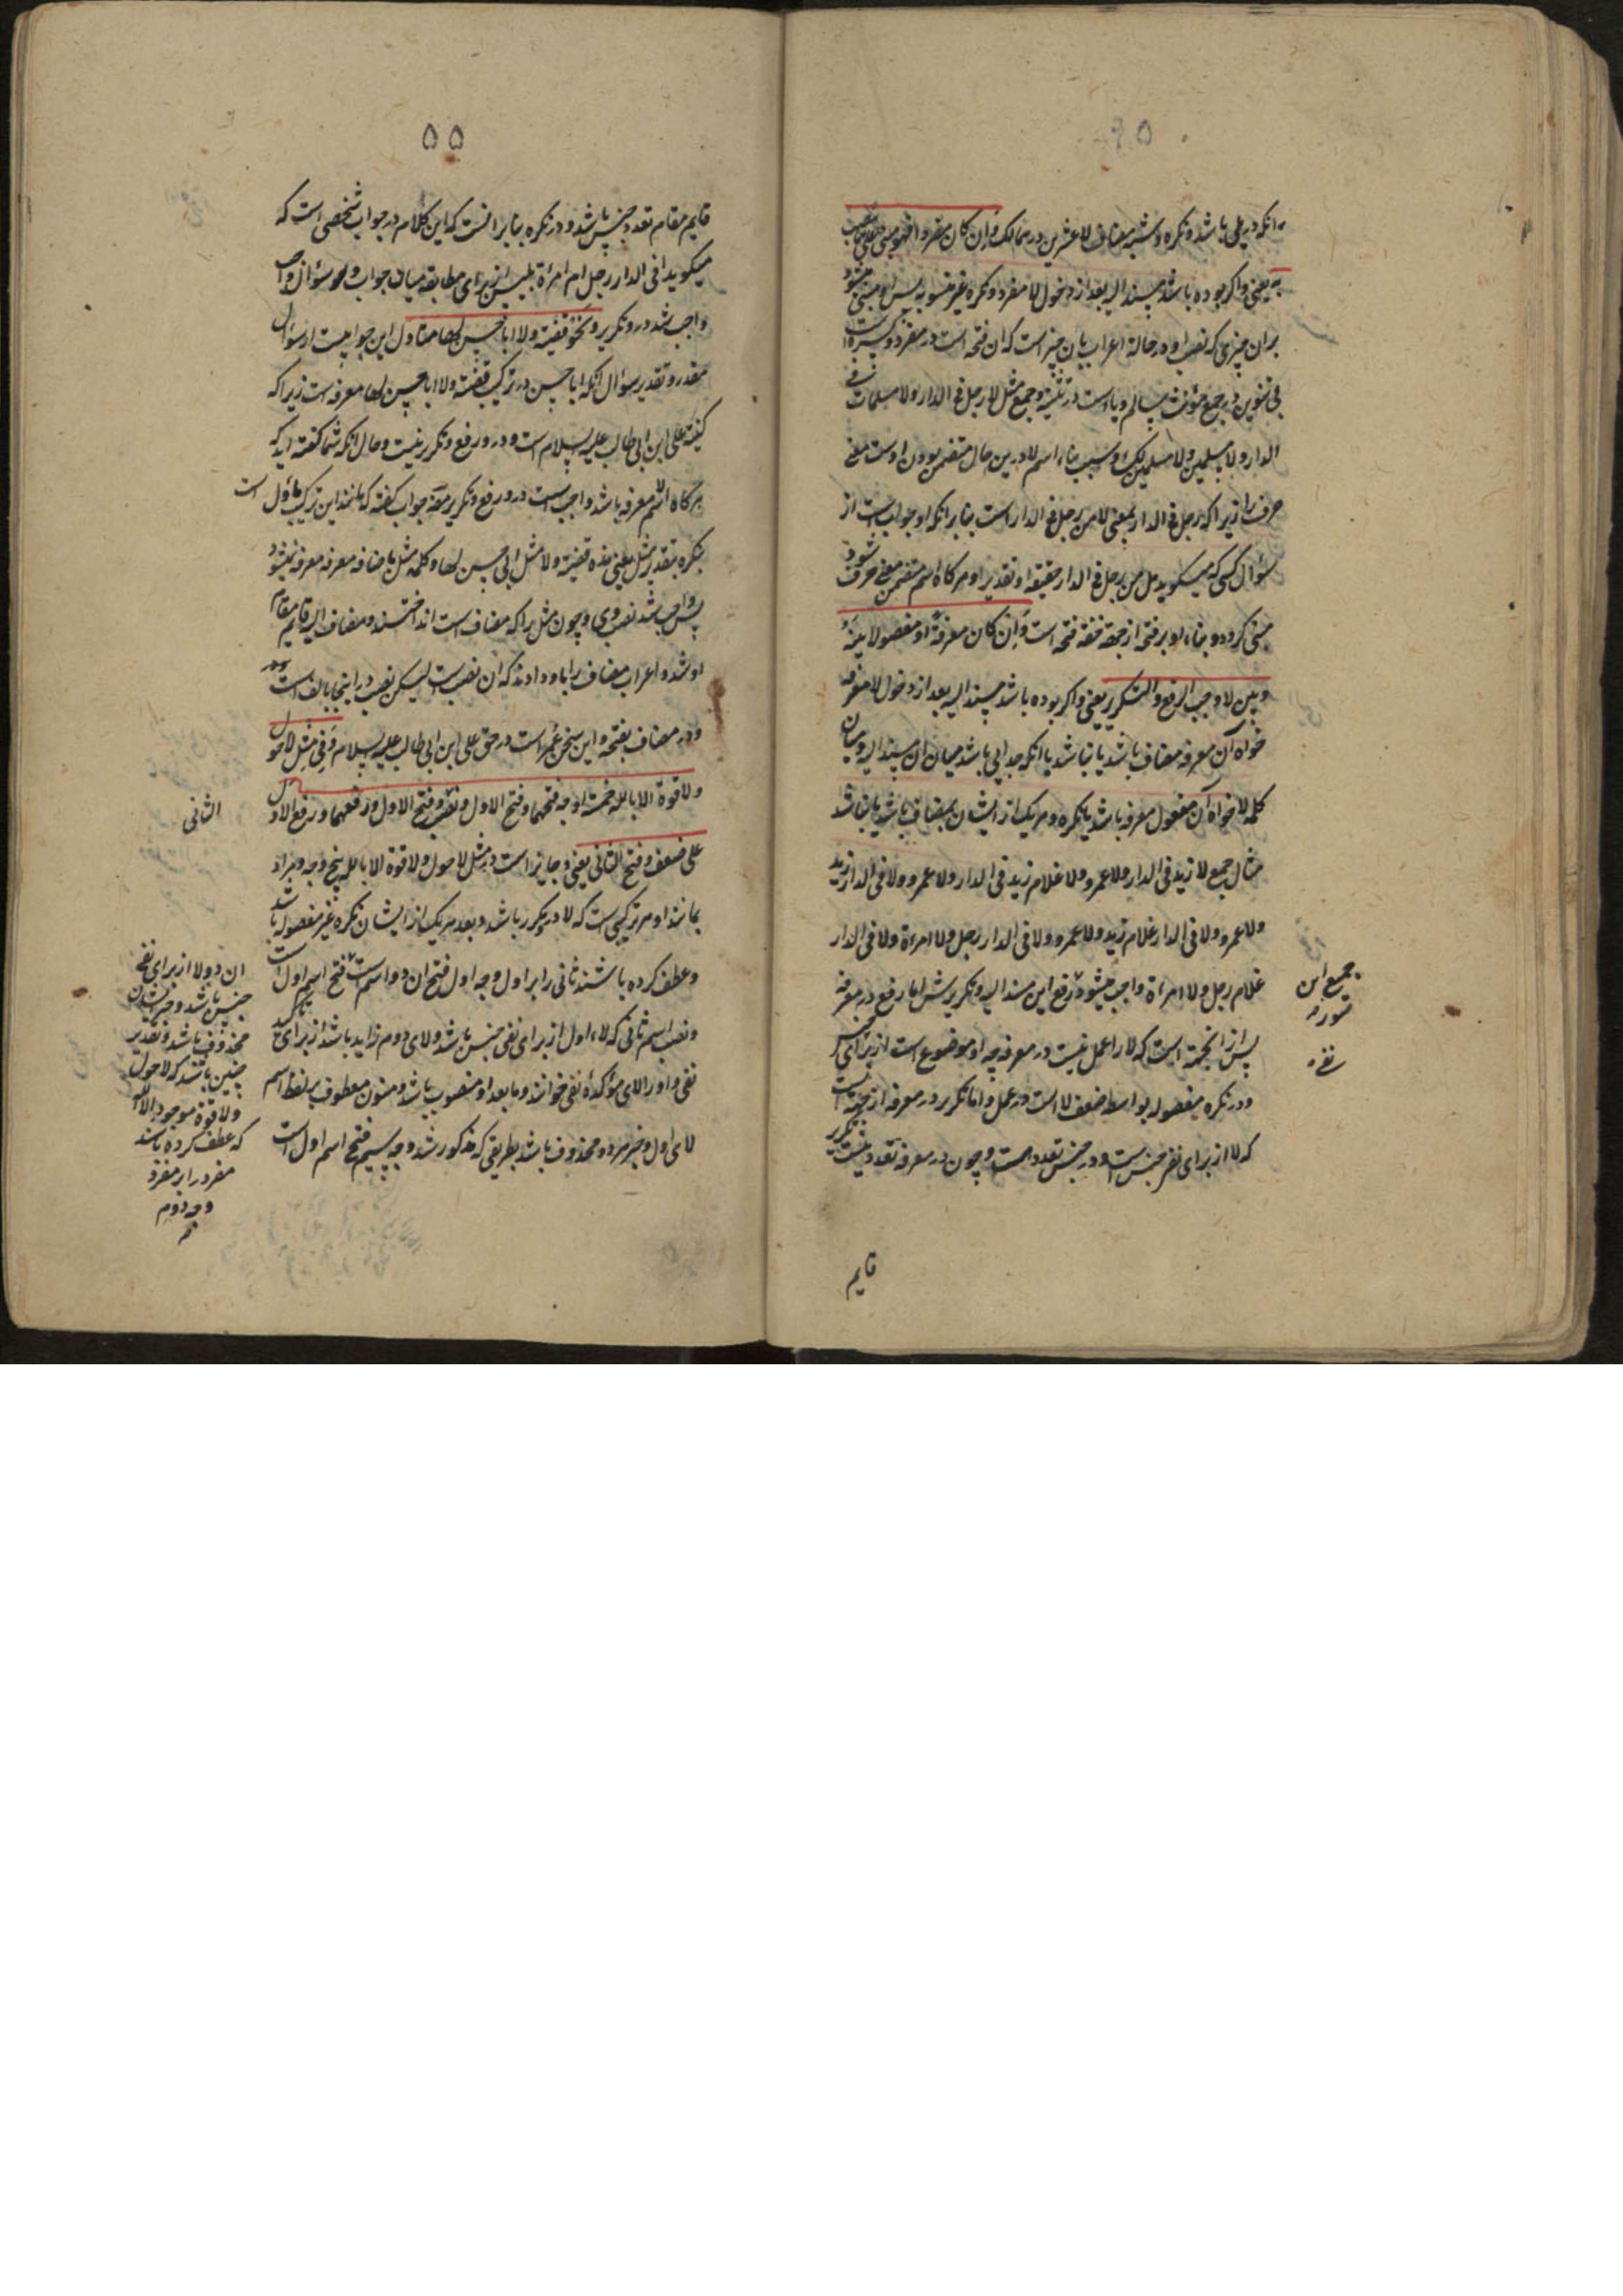 آنکه در پی باشد و نکره و مشبه مضاف لا عشرین درهما لک وان کان مفردا فهو مبنی علی ما ینصب
به یعنی و اگر بوده باشد مسند الیه بعد از دخول لا مفرد و نکره غیر مفصوله پس او مبنی میشود
بران چیزی که نصب او در حالة اعراب بان چیز است که ان فتحه است در مفرد و کسره است
بی تنوین در جمع مؤنث سالم و یا است در تثنیه و جمع مثل لا رجل فی الدار ولا مسلمات فی
الدار ولا مسلمین ولا مسلمین لک و سبب بناء اسم لا درین حال متضمن بودن اوست معنی
حرف را زیرا که لا رجل فی الدار بمعنی لا من رجل فی الدار است بنابر انکه او جواب است از
سؤال کسی که میگوید هل من رجل فی الدار حقیقة او تقدیرا و هر گاه اسم متضمن معنی حرف شود
مبنی گردد و بناء او بر فتحه از جهة خفة فتحه است وان کان معرفة او مفصولا بینه
وبین لا وجب الرفع والتکریر یعنی و اگر بوده باشد مسند الیه بعد از دخول لا معرفه
خواه آن معرفه مضاف باشد یا نباشد یا انکه جدایی باشد میان ان مسند الیه و میان
کلمه لا خواه آن مفصول معرفه باشد یا نکره و هر یک از ایشان مضاف باشد یا نباشد
مثال جمیع لا زید فی الدار ولا عمرو ولا غلام زید فی الدار ولا عمرو ولا فی الدار زید
ولا عمرو ولا فی الدار غلام زید ولا عمرو ولا فی الدار رجل ولا امرءة ولا فی الدار
غلام رجل ولا امراة واجب میشود رفع این مسند الیه و تکریرش اما رفع در معرفه
جمیع این
صور
پس از انجهة است که لا را عمل نیست در معرفه چه او موضوع است از برای نفی جنس
و در نکره مفصوله بواسطه ضعف لا است در عمل و اما تکریر در معرفه از جهة انست
که لا از برای نفی جنس است و در جنس تعدد هست و چون در معرفه تعدد نیست تکریر
قایم
۵۵
قایم مقام تعدد جنس باشد و در نکره بنابر انست که این کلام در جواب شخصی است که
میگوید افی الدار رجل ام امرءة پس از برای مطابقه میان جواب و سؤال
واجب شد درو تکریر و نحو قضیة ولا ابا حسن لها متاول این جوابیست از سؤال
مقدر و تقدیر سؤال انکه ابا حسن در ترکیب قضیة ولا ابا حسن لها معرفه است زیرا که
کنیة علی ابن ابی طالب علیه السلام است و درو رفع و تکریر نیست و حال انکه شما گفته اید که
هر گاه اسم معرفه باشد واجب است درو رفع و تکریر جواب گفته که مانند این ترکیب مأول است
بنکره بتقدیر مثل یعنی هذه قضیة ولا مثل ابی حسن لها و کلمه مثل باضافه معرفه معرفه نمیشود
پس واجب شد نصب وی و چون مثل را که مضاف است انداختند و مضاف الیه قایم مقام
او شد و اعراب مضاف را باو دادند که ان نصب است لیکن نصب در اینجا بالف است
و در مضاف بفتحه و این سخن عمر است در حق علی ابن ابی طالب علیه السلام وفی مثل لا حول
ولا قوة الا بالله خمسة اوجه فتحهما وفتح الاول ونصب وفتح الاول ورفعهما ورفع الاول
الثانی
علی ضعف وفتح الثانی یعنی و جایز است در مثل لا حول ولا قوة الا بالله پنج وجه و مراد
بمانند او هر ترکیبی است که لا درو مکرر باشد و بعد هر یک از ایشان نکره غیر مفصوله باشد
و عطف کرده باشند ثانی را بر اول وجه اول فتح ان دو اسم است فتح اسم اول است
و نصب اسم ثانی که لاء اول از برای نفی جنس باشد ولای دوم زاید باشد از برای تاکید
نفی و او را لای مؤکدهٔ نفی خوانند و ما بعد او منصوب باشد و منون معطوف بر لفظ اسم
لای اول و خبر هر دو محذوف باشد بطریقی که مذکور شد وجه سیم فتح اسم اول است
ان دو لا از برای نفی
جنس باشد و خبر ایشان
محذوف باشد و تقدیر
چنین باشد که لا حول
ولا قوة موجود الا بالله
که عطف کرده باشند
مفرد را بر مفرد
وجه دوم